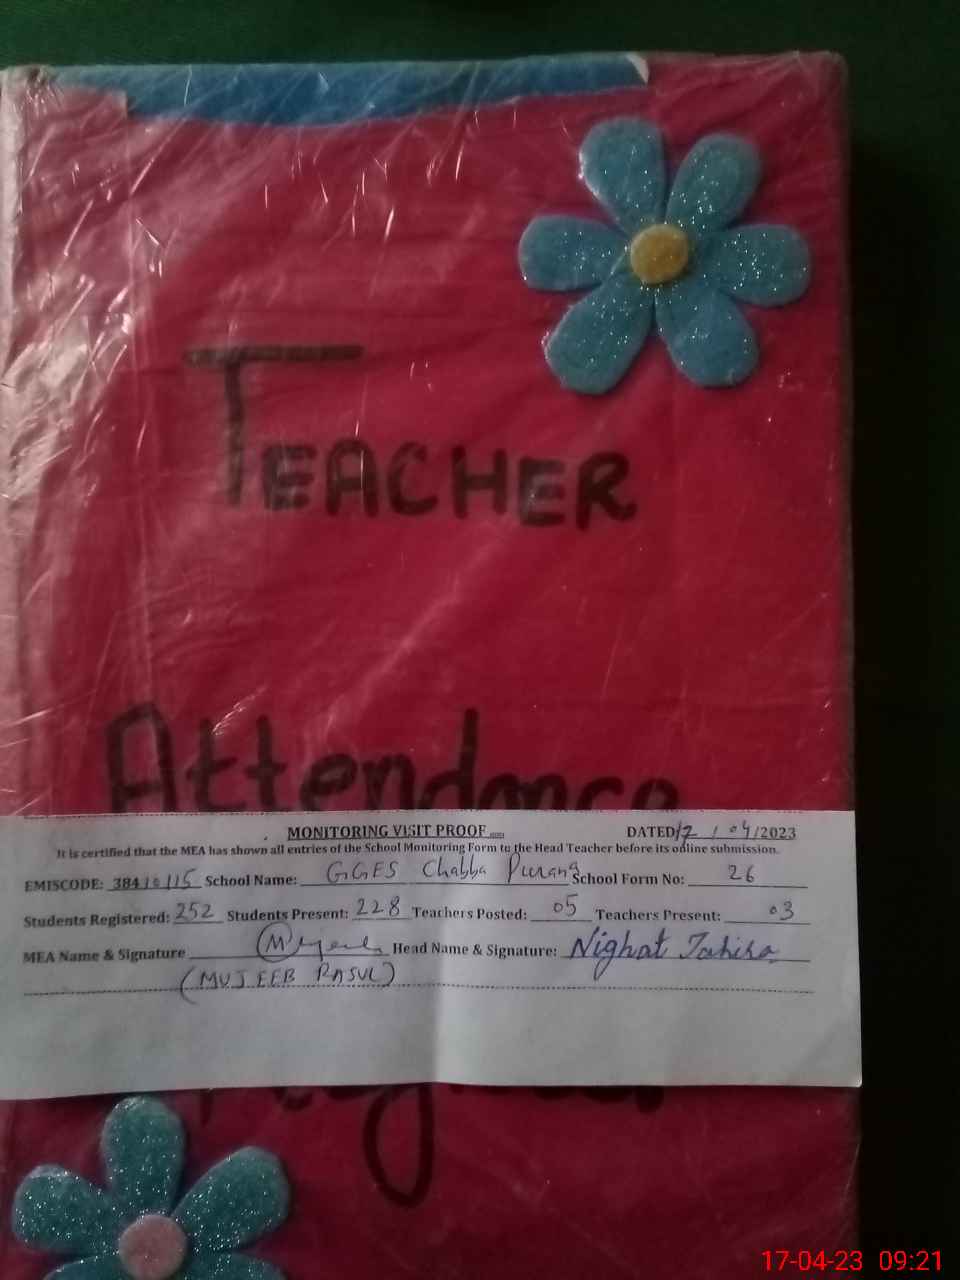 TEACHER
Attendance
MONITORING VISIT PROOF
DATED 17/04/2023
It is certified that the MEA has shown all entries of the School Monitoring Form to the Head Teacher before its online submission.
EMISCODE: 38410115 School Name: GGES Chabba Purana School Form No: 26
Students Registered: 252 Students Present: 228 Teachers Posted: 05 Teachers Present: 03
MEA Name & Signature Head Name & Signature: Nighat Tahira
(MUJEEB RASUL)
Register
17-04-23 09:21